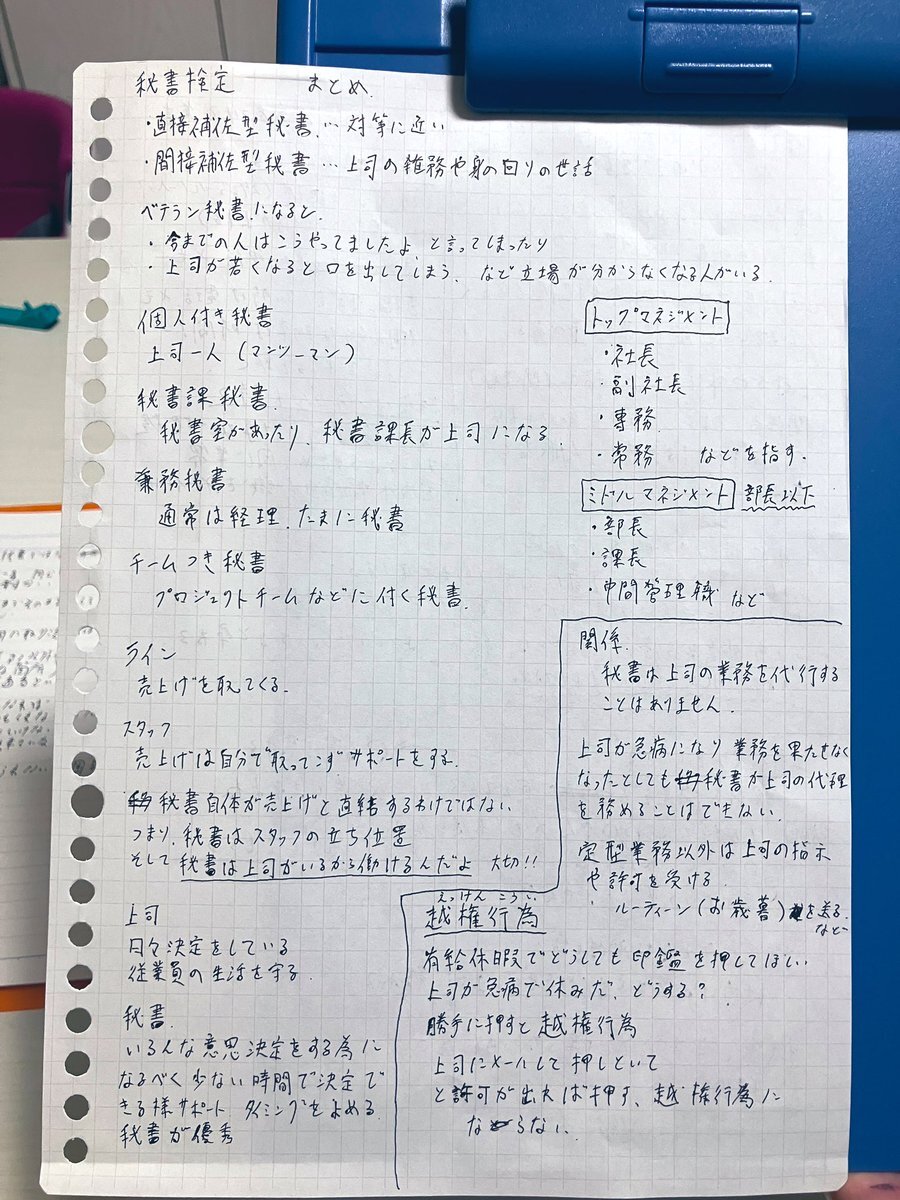 秘書検定　まとめ
・直接補佐型秘書…対等に近い
・間接補佐型秘書…上司の雑務や身の回りの世話
ベテラン秘書になると
・今までの人はこうやってましたよ、と言ってしまったり
・上司が若くなると口を出してしまう、など立場が分からなくなる人がいる。
個人付き秘書
上司一人（マンツーマン）
秘書課秘書
秘書室があったり、秘書課長が上司になる。
兼務秘書
通常は経理、たまに秘書
チームつき秘書
プロジェクトチームなどに付く秘書
ライン
売上げを取ってくる。
スタッフ
売上げは自分で取ってこずサポートをする。
秘書自体が売上げと直結するわけではない
つまり、秘書はスタッフの立ち位置
そして秘書は上司がいるから働けるんだよ　大切!!
上司
日々決定をしている
従業員の生活を守る
秘書
いろんな意思決定をする為に
なるべく少ない時間で決定で
きる様サポート　タイミングをよめる
秘書が優秀
トップマネジメント
・社長
・副社長
・専務
・常務　などを指す。
ミドルマネジメント　部長以下
・部長
・課長
・中間管理職　など
関係
秘書は上司の業務を代行する
ことはありません。
上司が急病になり業務を果たせなく
なったとしても秘書が上司の代理
を務めることはできない。
定型業務以外は上司の指示
や許可を受ける
ルーティーン（お歳暮）を送る
など
えっけん　こうい
越権行為
有給休暇でどうしても印鑑を押してほしい
上司が急病で休みだ、どうする?
勝手に押すと越権行為
上司にメールして押しといて
と許可が出れば押す、越権行為に
ならない